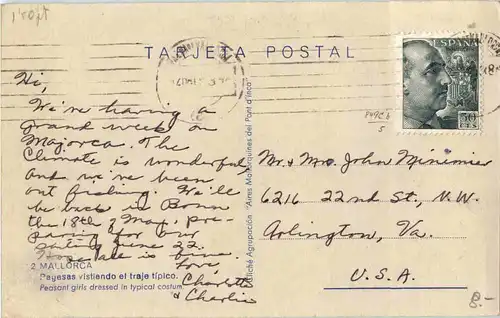 1'50 pt
TARJETA POSTAL
ESPAÑA
50
CTS
Hi,
We're having a
grand week on
Majorca. The
Climate is wonderful
and we've been
out fishing. We'll
be back in Bonn
the 18th of May, pre-
paring for our
sailing June 22.
Hope all is fine.
Love,
Charlotte
& Charlie
2 MALLORCA
Payesas vistiendo el traje típico.
Peasant girls dressed in typical costum
Cliché Agrupación "Aires Mallorquines del Pont d'Inca"
Mr. & Mrs. John Minimier
6216 22nd St., N.W.
Arlington, Va.
U.S.A.
8.-